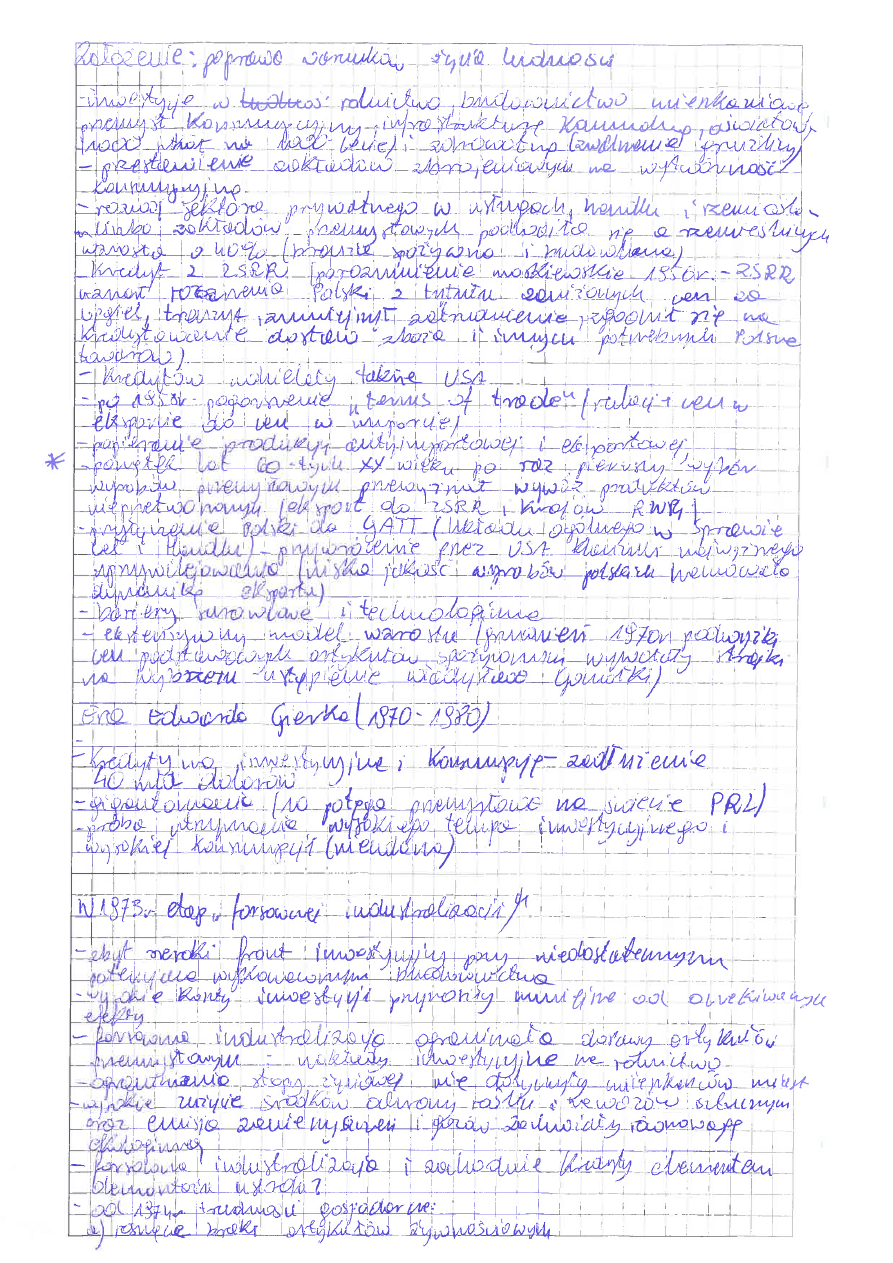 Założenie: poprawa warunków życia ludności
-inwestycje w rolnictwo, budownictwo mieszkaniowe
przemysł konsumpcyjny, infrastrukturę komunalną, oświatową
(1000 szkół na 1000-lecie) i zdrowotną (zwalczenie gruźlicy)
- przestawienie zakładów zbrojeniowych na wytwórczość
konsumpcyjną
- rozwój sektora prywatnego w usługach, handlu i rzemiośle
- zakładów przemysłowych podwoiła się a rzemieślniczych
wzrosła o 40% (branże spożywcza i budowlana)
- kredyt z ZSRR (porozumienie moskiewskie 1956r. - ZSRR
uznał roszczenia Polski z tytułu zaniżonych cen za
węgiel, tranzyt, zgodził się na
kredytowanie dostaw zboża i innych potrzebnych Polsce
towarów)
- kredytów udzielały także USA
- po 195 r. pogorszenie "terms of trade" (relacji cen w
eksporcie do cen w imporcie)
- popieranie produkcji antyimportowej i eksportowej
* - początek lat 60-tych XX wieku po raz pierwszy wywóz
wyrobów przemysłowych przewyższał wywóz produktów
nieprzetworzonych (eksport do ZSRR i krajów RWPG)
- przystąpienie Polski do GATT (Układu Ogólnego w Sprawie
Ceł i Handlu) - przywrócenie przez USA klauzuli najwyższego
uprzywilejowania (niska jakość wyrobów polskich hamowała
dynamikę eksportu)
- bariery surowcowe i technologiczne
- ekstensywny model wzrostu (grudzień 1970r. podwyżki
cen podstawowych artykułów spożywczych wywołały strajki
na wybrzeżu - ustąpienie Władysława Gomułki)
Era Edwarda Gierka (1970-1980)
-
- kredyty na inwestycyjne i konsumpcję - zadłużenie
40 mld dolarów
- gigantomania (10 potęga przemysłowa na świecie PRL)
- próba utrzymania wysokiego tempa inwestycyjnego i
wysokiej konsumpcji (nieudana)
W 1973r. etap „forsownej industrializacji"
- zbyt szeroki front inwestycyjny przy niedostatecznym
potencjale wykonawczym budownictwa
- wysokie koszty inwestycji przyrosły mniejsze od oczekiwanych
efekty
- forsowna industrializacja ograniczała dostawy artykułów
przemysłowych i nakłady inwestycyjne na rolnictwo
- ograniczenia stopy życiowej nie dotyczyły mieszkańców miast
- wysokie zużycie środków ochrony roślin i nawozów sztucznych
oraz emisja zanieczyszczeń i gazów zachwiały równowagę
ekologiczną
- forsowna industrializacja i zachodnie kredyty elementem
demontażu ustroju?
- od 197 r. trudności gospodarcze:
a) rosnące braki artykułów żywnościowych